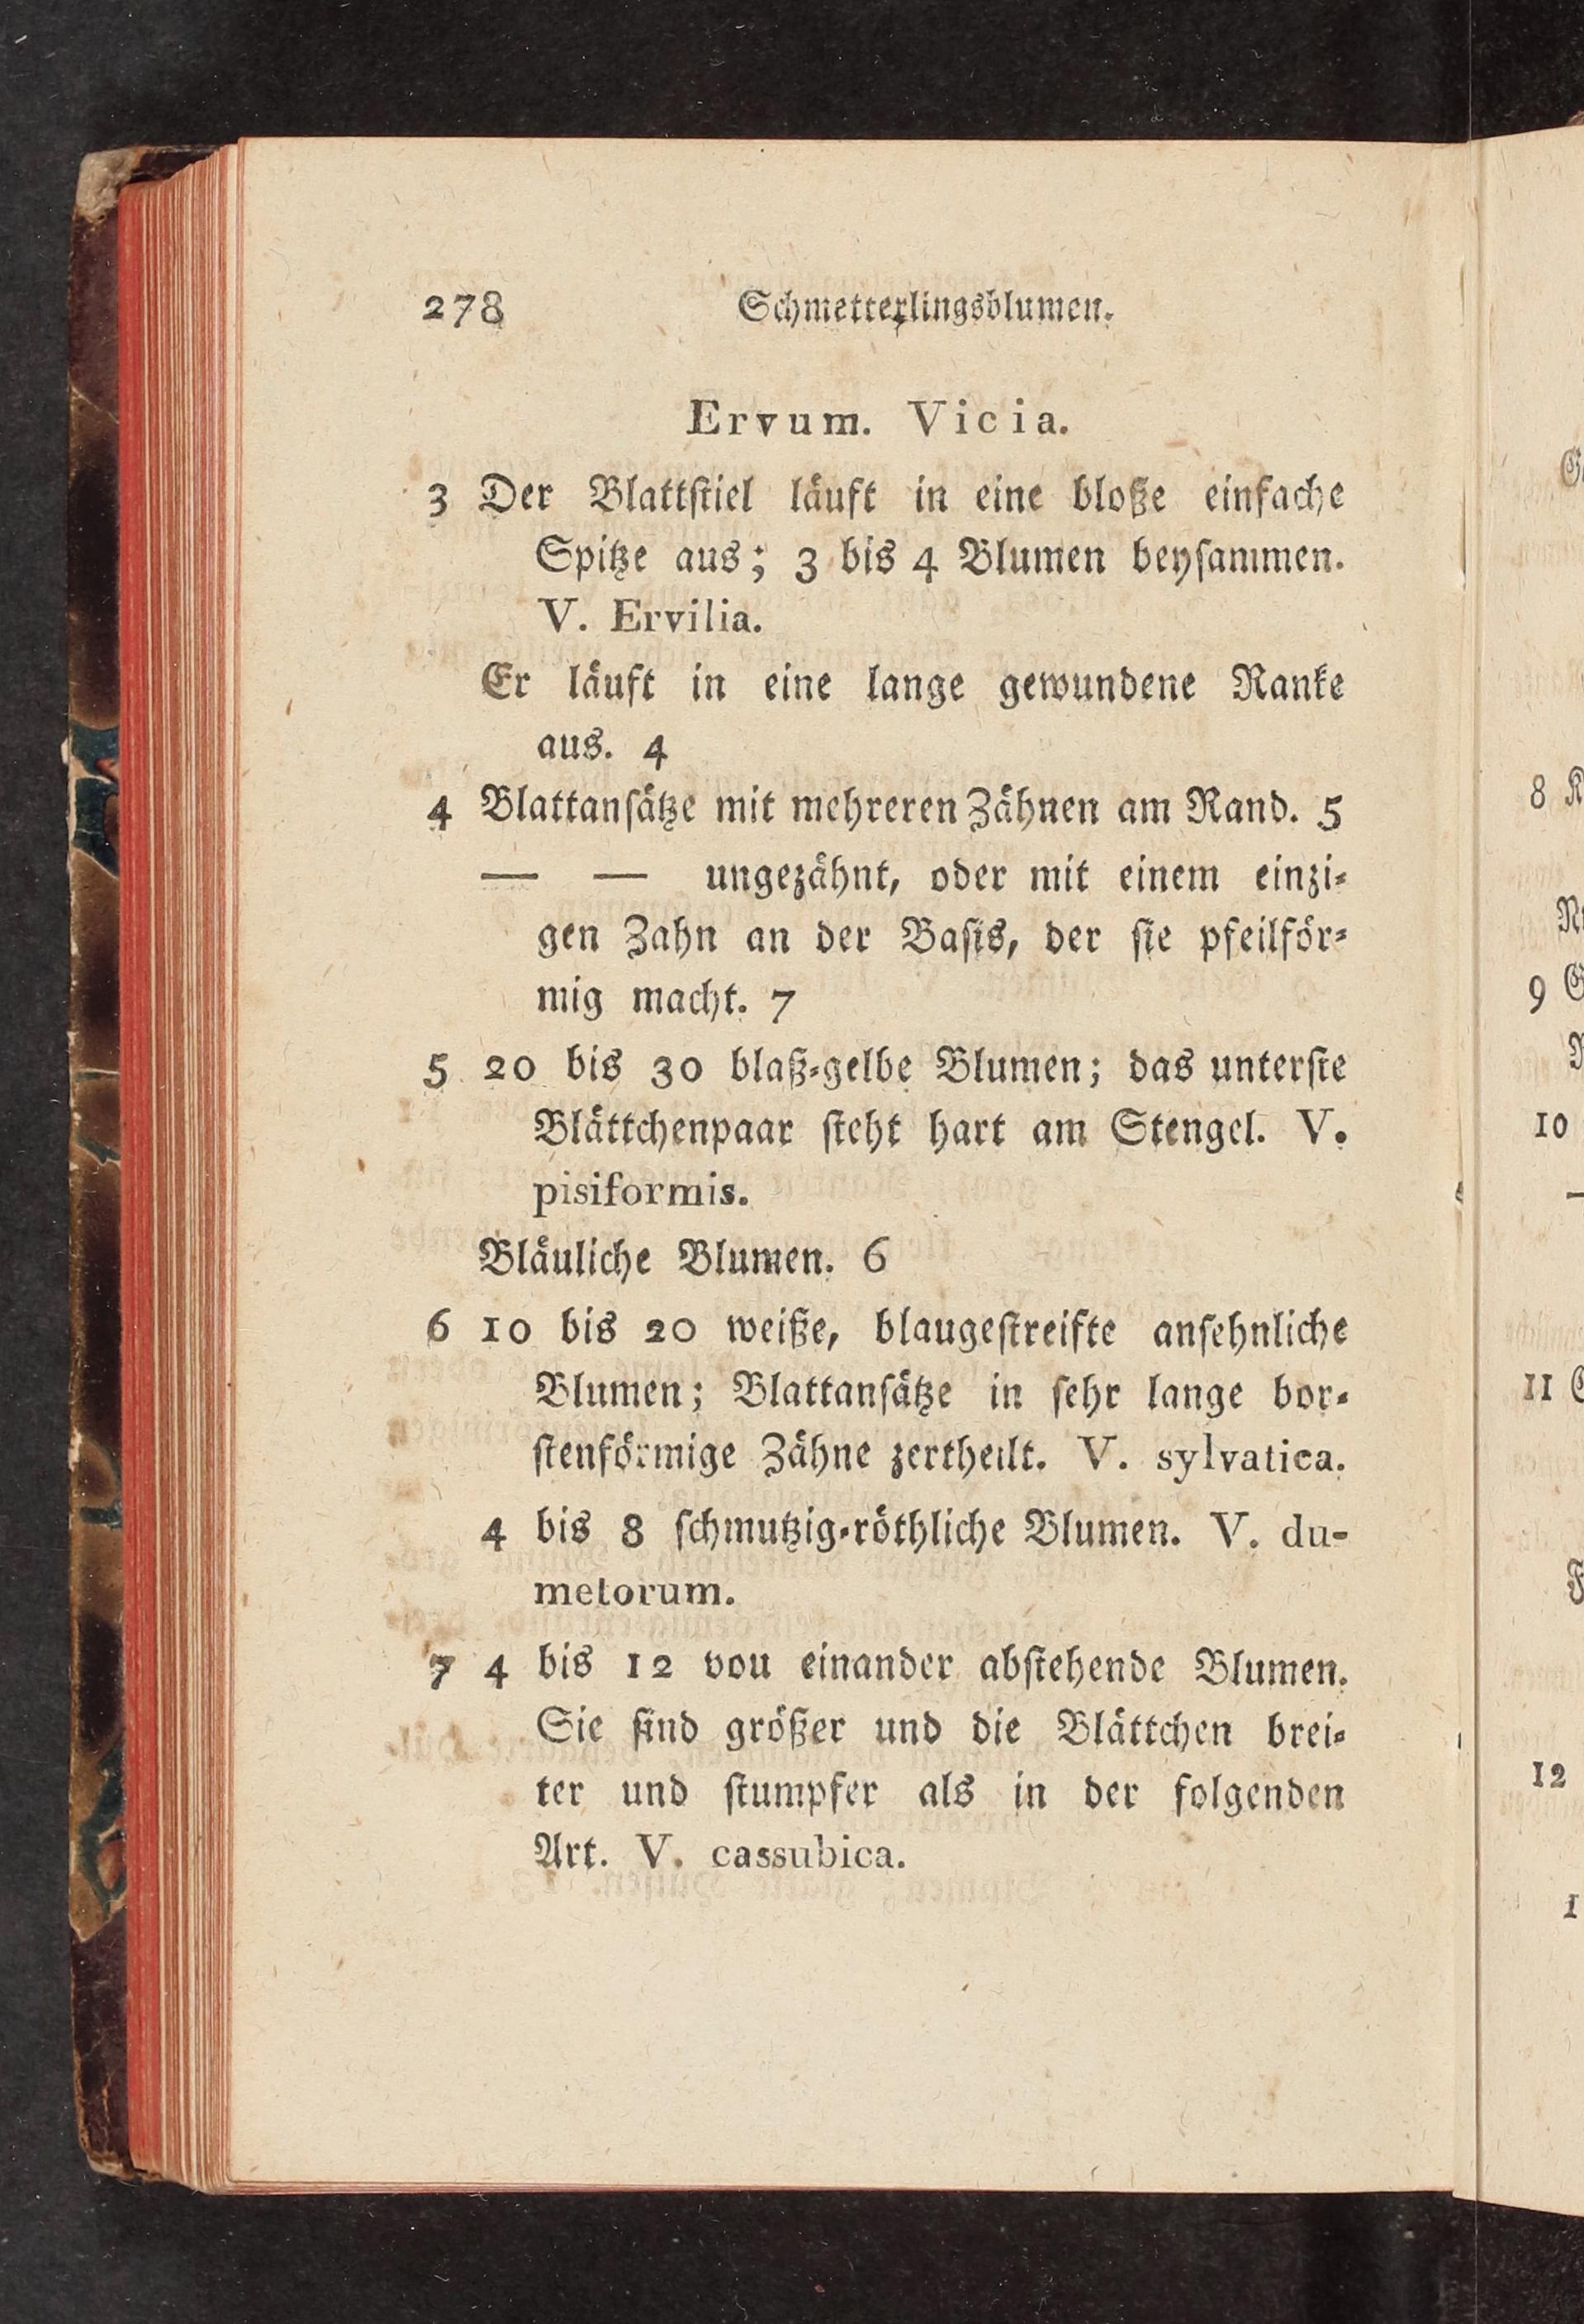 278 Schmetterlingsblumen.
Ervum. Vicia.
3 Der Blattſtiel läuft in eine bloße einfache
Spitze aus; 3 bis 4 Blumen beyſammen.
V. Ervilia.
Er läuft in eine lange gewundene Ranke
aus. 4
4 Blattanſätze mit mehreren Zähnen am Rand. 5
— — ungezähnt, oder mit einem einzi-
gen Zahn an der Baſis, der ſie pfeilför-
mig macht. 7
5 20 bis 30 blaß-gelbe Blumen; das unterſte
Blättchenpaar ſteht hart am Stengel. V.
pisiformis.
Bläuliche Blumen. 6
6 10 bis 20 weiße, blaugeſtreifte anſehnliche
Blumen; Blattanſätze in ſehr lange bor-
ſtenförmige Zähne zertheilt. V. sylvatica.
4 bis 8 ſchmutzig-röthliche Blumen. V. du-
metorum.
7 4 bis 12 vou einander abſtehende Blumen.
Sie ſind größer und die Blättchen brei-
ter und ſtumpfer als in der folgenden
Art. V. cassubica.
8
9
10
11
12